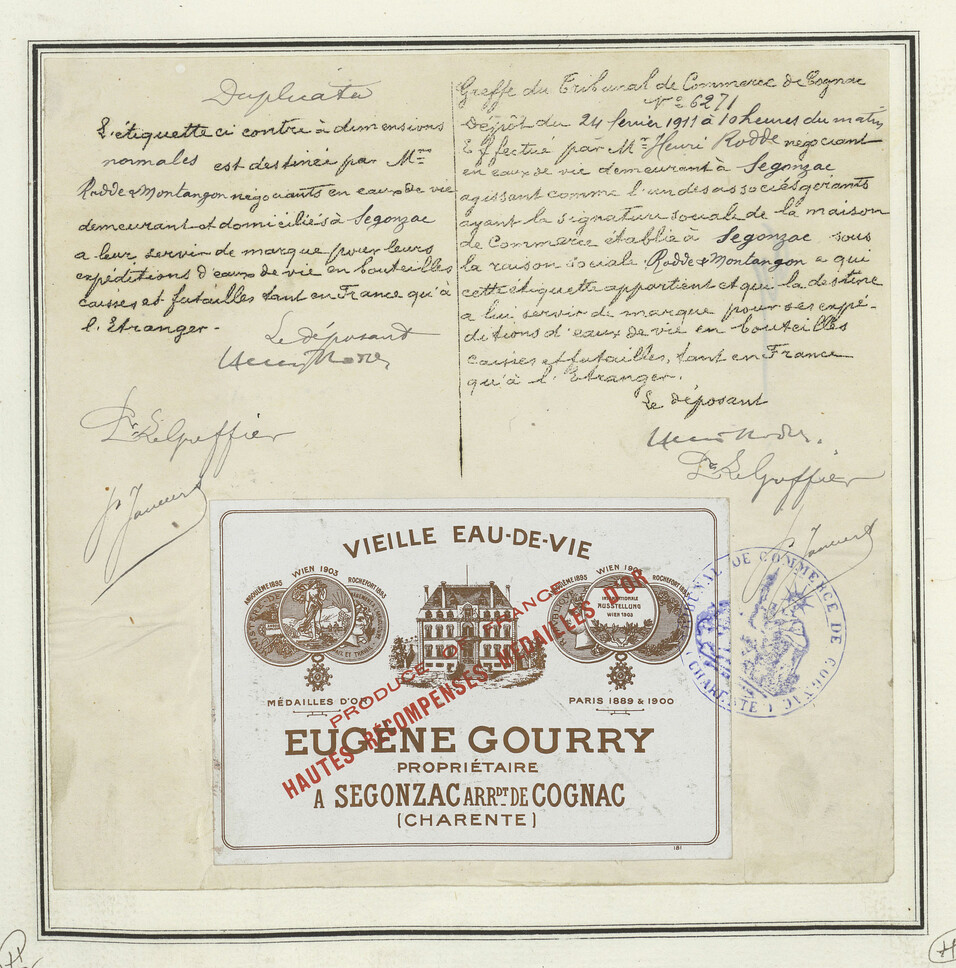 Duplicata
L'étiquette ci contre à dimensions
normales est destinée par Mrs
Rodde & Montangon négociants en eaux de vie
demeurant et domiciliés à Segonzac
a leur servir de marque pour leurs
expéditions d'eaux de vie en bouteilles
caisses et futailles tant en France qu'à
l'Etranger.
Le déposant
Henri Rodde
Pr Le Greffier
Greffe du Tribunal de Commerce de Cognac
No 6271
Dépôt du 24 février 1911 à 10 heures du matin
Effectué par Mr Henri Rodde négociant
en eaux de vie demeurant à Segonzac
agissant comme l'un des associés gérants
ayant la signature sociale de la maison
de Commerce établie à Segonzac sous
la raison sociale Rodde & Montangon a qui
cette étiquette appartient et qui la destine
a lui servir de marque pour ses expé-
ditions d'eaux de vie en bouteilles
caisses et futailles, tant en France
qu'à l'Etranger.
Le déposant
Henri Rodde.
Pr Le Greffier
VIEILLE EAU-DE-VIE
ANGOULÊME 1895 WIEN 1903 ROCHEFORT 1898
ANGOULÊME 1895 WIEN 1903 ROCHEFORT
INTERNATIONALE
AUSSTELLUNG
WIEN 1903
MÉDAILLES D'OR
PARIS 1889 & 1900
PRODUCE OF FRANCE
HAUTES RÉCOMPENSES MÉDAILLES D'OR
EUGÈNE GOURRY
PROPRIÉTAIRE
A SEGONZAC ARRPT DE COGNAC
(CHARENTE)
181
TRIBUNAL DE COMMERCE DE COGNAC
(CHARENTE)
H
H